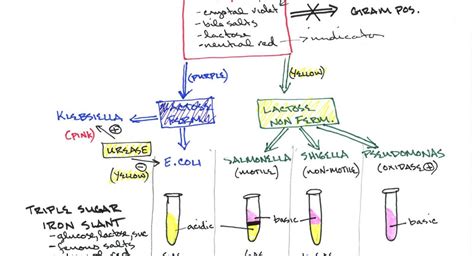 - crystal violet
- bile salts
- lactose
- neutral red
GRAM POS.
indicator
(PURPLE)
(YELLOW)
LACTOSE
FERM.
LACTOSE
NON FERM.
KLEBSIELLA
(PINK)
+
UREASE
-
(YELLOW)
E.COLI
SALMONELLA
(MOTILE)
SHIGELLA
(NON-MOTILE)
PSEUDOMONAS
(OXIDASE +)
TRIPLE SUGAR
IRON SLANT
- glucose, lactose, suc
- ferrous salts
acidic
basic
basic
GAS
GAS